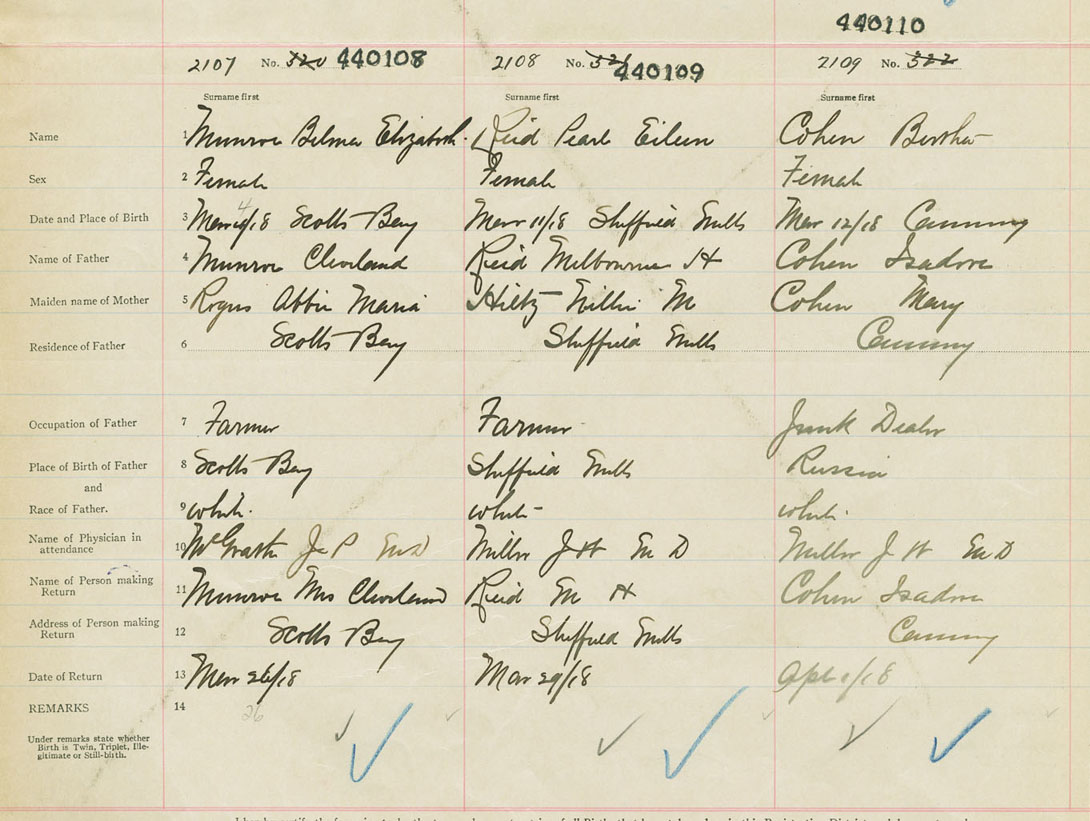 440110
2107 No. 320 440108 2108 No. 321 440109 2109 No. 322
Surname first Surname first Surname first
Name 1 Munroe Belma Elizabeth Reid Pearl Eileen Cohen Bertha
Sex 2 Female Female Female
Date and Place of Birth 3 Mar 4/18 Scotts Bay Mar 11/18 Sheffield Mills Mar 12/18 Canning
Name of Father 4 Munroe Cleveland Reid Melbourne H Cohen Isadore
Maiden name of Mother 5 Rogers Abbie Maria Hiltz Nillie M Cohen Mary
Residence of Father 6 Scotts Bay Sheffield Mills Canning
Occupation of Father 7 Farmer Farmer Junk Dealer
Place of Birth of Father 8 Scotts Bay Sheffield Mills Russia
and
Race of Father. 9 white. white white.
Name of Physician in attendance 10 McGrath J P M D Miller J W M D Miller J W M D
Name of Person making Return 11 Munroe Mrs Cleveland Reid M H Cohen Isadore
Address of Person making Return 12 Scotts Bay Sheffield Mills Canning
Date of Return 13 Mar 26/18 Mar 29/18 Apl 1/18
REMARKS 14 26
Under remarks state whether
Birth is Twin, Triplet, Ille-
gitimate or Still-birth.